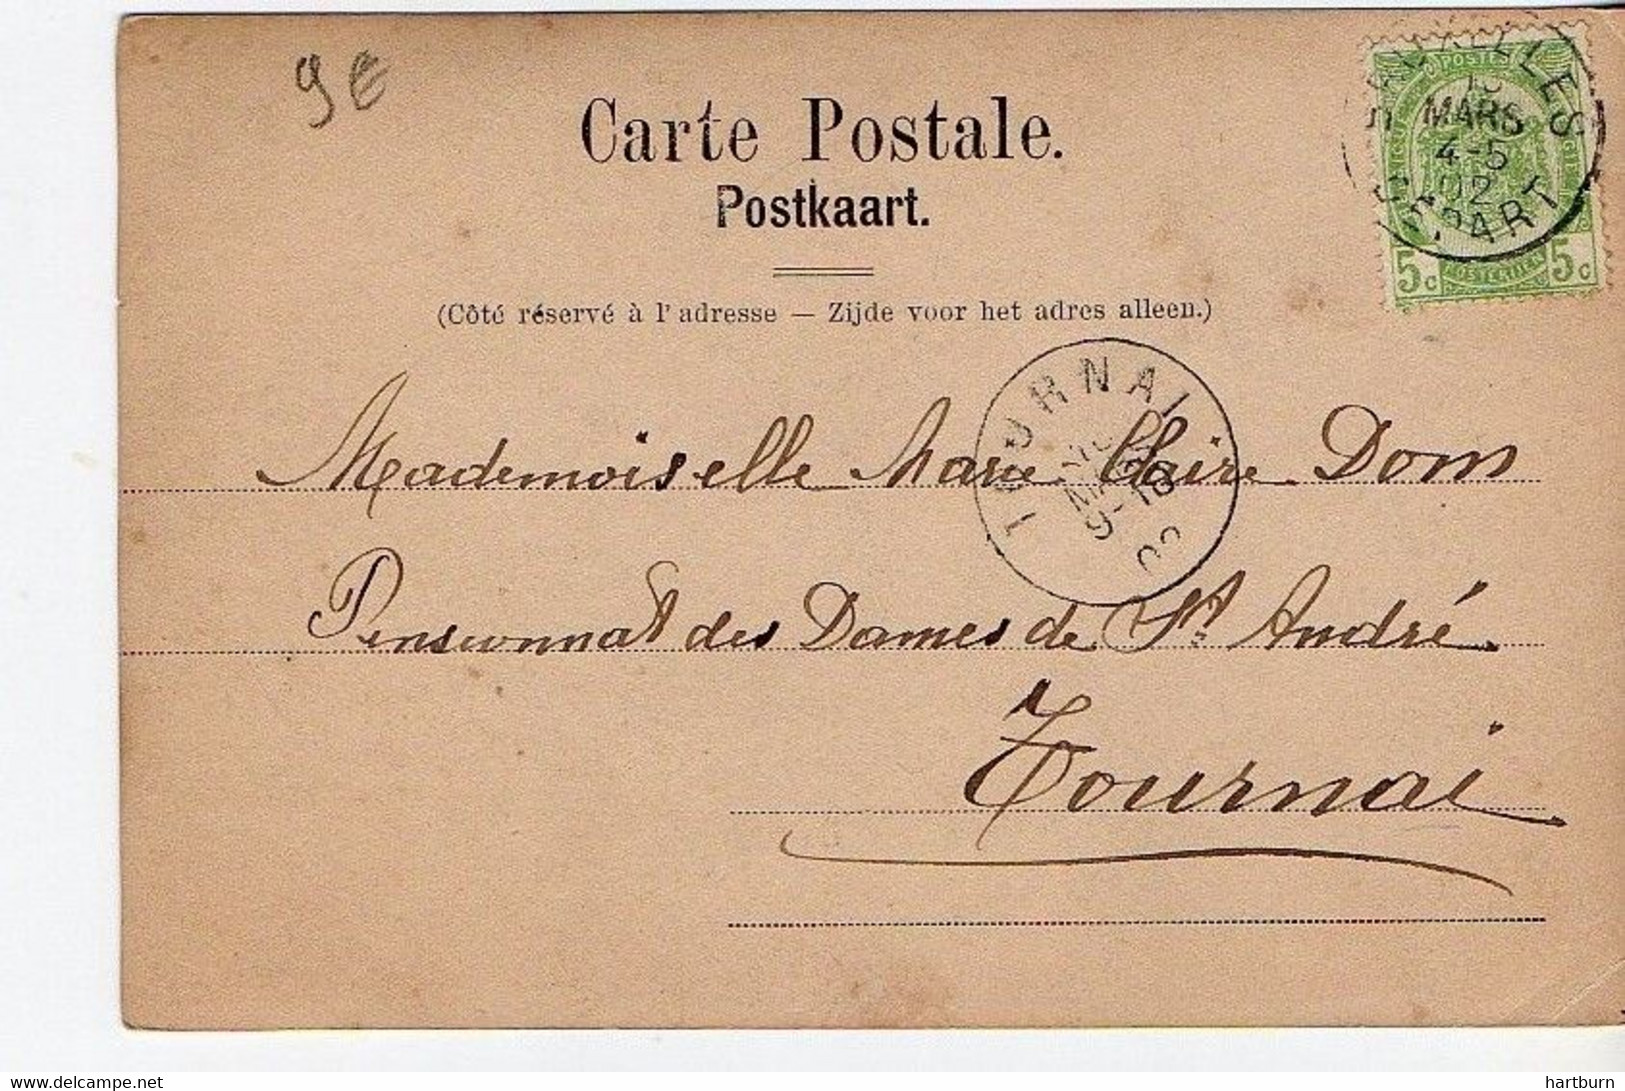 9€
Carte Postale.
Postkaart.
(Côté réservé à l'adresse — Zijde voor het adres alleen.)
POSTES
MARS
4-5
02
DEPART
5c POSTERIJEN 5c
TOURNAI
9-10
02
Mademoiselle Marie Claire Dom
Pensionnat des Dames de St André.
Tournai
www.delcampe.net
hartburn